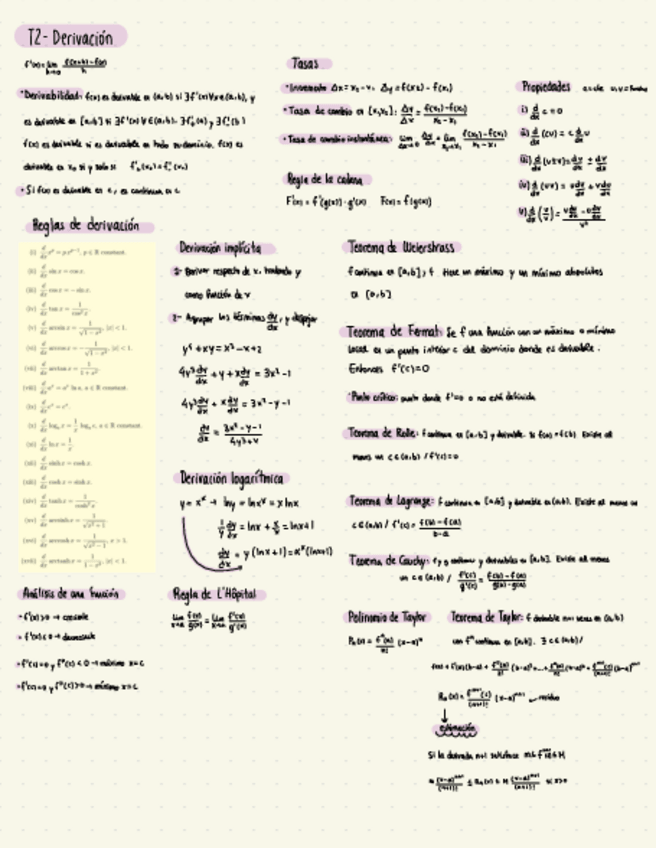 T2- Derivación
f'(x)= lim h→0 f(x+h)-f(x) / h
• Derivabilidad: f(x) es derivable en (a,b) si ∃f'(x)∀x∈(a,b), y
es derivable en [a,b] si ∃f'(x) ∀∈(a,b), ∃f'(a) y ∃f'(b)
f(x) es derivable si es derivable en todo su dominio. f(x) es
derivable en x₀ si y solo si f'₋(x₀)=f'₊(x₀)
• Si f(x) es derivable en c, es continua en c
Tasas
• Incremento Δx = x₂-x₁ Δy = f(x₂) - f(x₁)
• Tasa de cambio en [x₁,x₂]: Δy/Δx = f(x₂)-f(x₁) / x₂-x₁
• Tasa de cambio instantánea: lim Δx→0 Δy/Δx = lim x₂→x₁ f(x₂)-f(x₁) / x₂-x₁
Regla de la cadena
F'(x) = f'(g(x))·g'(x) F(x) = f(g(x))
Propiedades
i) d/dx c = 0
ii) d/dx (cu) = c d/dx u
iii) d/dx (u±v) = du/dx ± dv/dx
iv) d/dx (uv) = u dv/dx + v du/dx
v) d/dx (u/v) = v du/dx - u dv/dx / v²
Reglas de derivación
(ii) d/dx sin x = cos x.
(iii) d/dx cos x = − sin x.
(iv) d/dx tan x = 1/cos² x
(v) d/dx arcsin x = 1/√1−x², |x| < 1.
(vi) d/dx arccos x = −1/√1−x², |x| < 1.
(vii) d/dx arctan x = 1/1+x²
(ix) d/dx eˣ = eˣ.
(xi) d/dx ln x = 1/x
(xii) d/dx sinh x = cosh x.
(xiii) d/dx cosh x = sinh x.
(xiv) d/dx tanh x = 1/cosh² x
Derivación implícita
1- Derivar respecto de x, tratando y
como función de x
2- Agrupar los términos dy/dx, y despejar
y⁴ + xy = x³ - x + 2
4y³ dy/dx + y + x dy/dx = 3x² - 1
4y³ dy/dx + x dy/dx = 3x² - y - 1
dy/dx = 3x² - y - 1 / 4y³ + x
Derivación logarítmica
y = xˣ → lny = lnxˣ = x lnx
1/y dy/dx = lnx + x/x = lnx+1
dy/dx = y (lnx+1) = xˣ(lnx+1)
Teorema de Weierstrass
f continua en [a,b], f tiene un máximo y un mínimo absolutos
en [a,b]
Teorema de Fermat: Se f una función con un máximo o mínimo
local en un punto interior c del dominio donde es derivable.
Entonces f'(c)=0
• Punto crítico: punto donde f'=0 o no está definida
Teorema de Rolle: f continua en [a,b] y derivable. si f(a)=f(b) Existe al
menos un c∈(a,b) / f'(c)=0
Teorema de Lagrange: f continua en [a,b] y derivable en (a,b). Existe al menos un
c∈(a,b) / f'(c) = f(b)-f(a) / b-a
Teorema de Cauchy: f y g continuas y derivables en [a,b]. Existe al menos
un c∈(a,b) / f'(c)/g'(c) = f(b)-f(a) / g(b)-g(a)
Análisis de una función
• f'(x)>0 → creciente
• f'(x)<0 → decreciente
• f'(c)=0 y f''(c)<0 → máximo x=c
• f'(c)=0 y f''(c)>0 → mínimo x=c
Regla de L'Hôpital
lim x→a f(x)/g(x) = lim x→a f'(x)/g'(x)
Polinomio de Taylor
Pₙ(x) = fⁿ(a)/n! (x-a)ⁿ
Teorema de Taylor: f derivable n+1 veces en (a,b)
con fⁿ continua en [a,b]. ∃ c∈(a,b)/
Rₙ(x) = fⁿ⁺¹(c)/(n+1)! (x-a)ⁿ⁺¹ residuo
estimación
Si la derivada n+1 satisface m≤fⁿ⁺¹≤M
m (x-a)ⁿ⁺¹/(n+1)! ≤ Rₙ(x) ≤ M (x-a)ⁿ⁺¹/(n+1)!